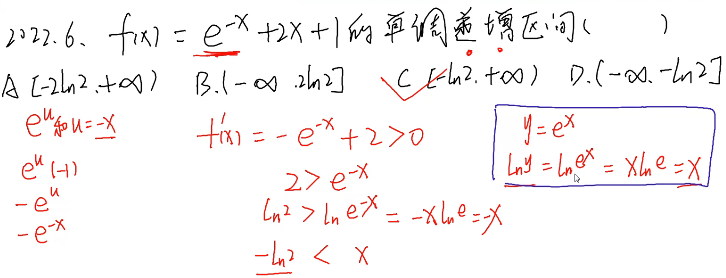 2022.6. f(x) = e^{-x} + 2x + 1 的单调递增区间( )
A [-2ln2.+∞) B.(-∞ .2ln2] C [-ln2.+∞) D.(-∞.-ln2]
e^u 和 u=-x
e^u (-1)
-e^u
-e^{-x}
f'(x) = -e^{-x} + 2 > 0
2 > e^{-x}
ln2 > ln e^{-x} = -xlne = -x
-ln2 < x
y = e^x
lny = lne^x = xlne = x